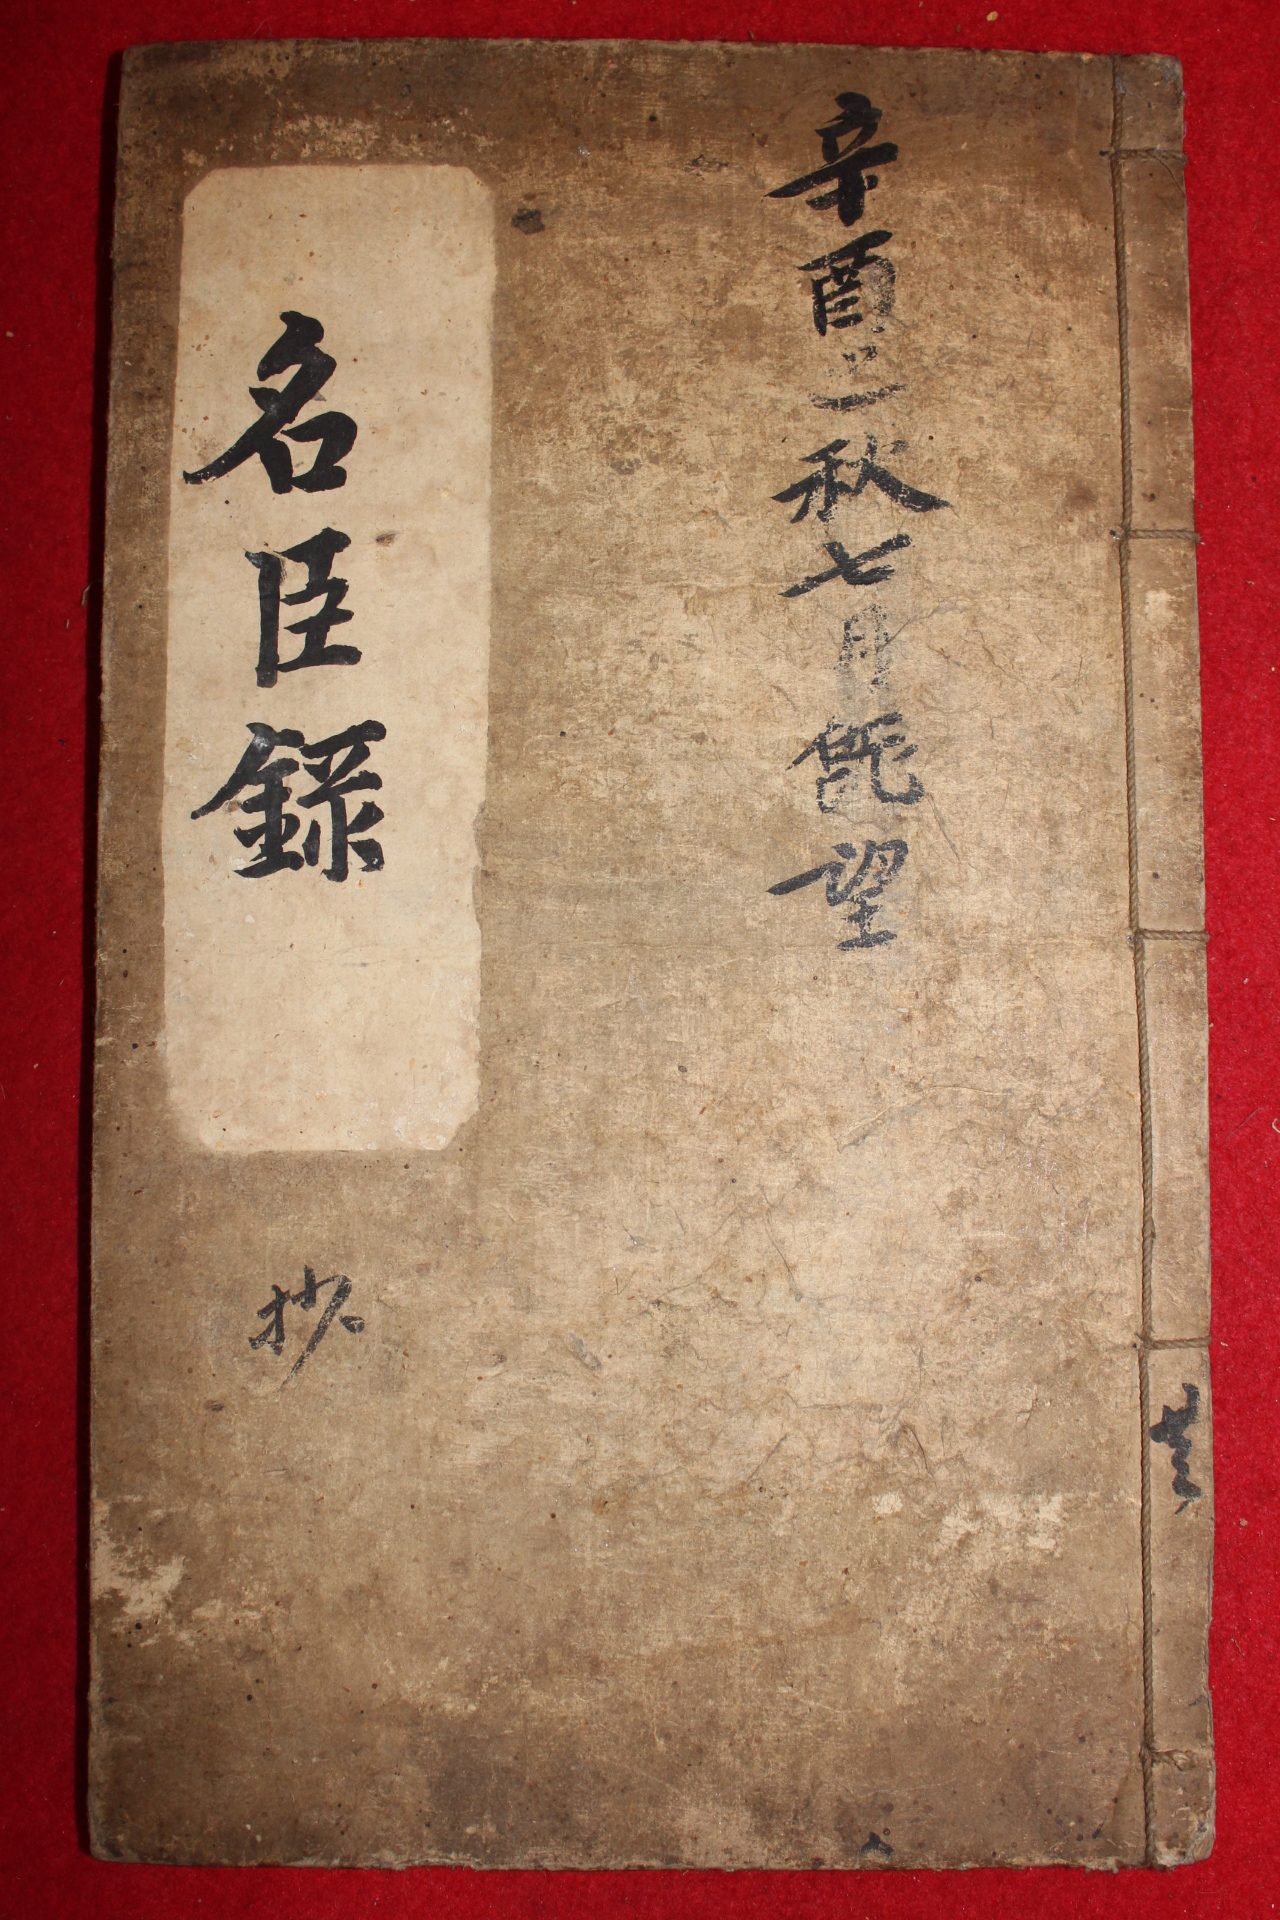 辛酉之秋七月旣望
名臣錄
抄